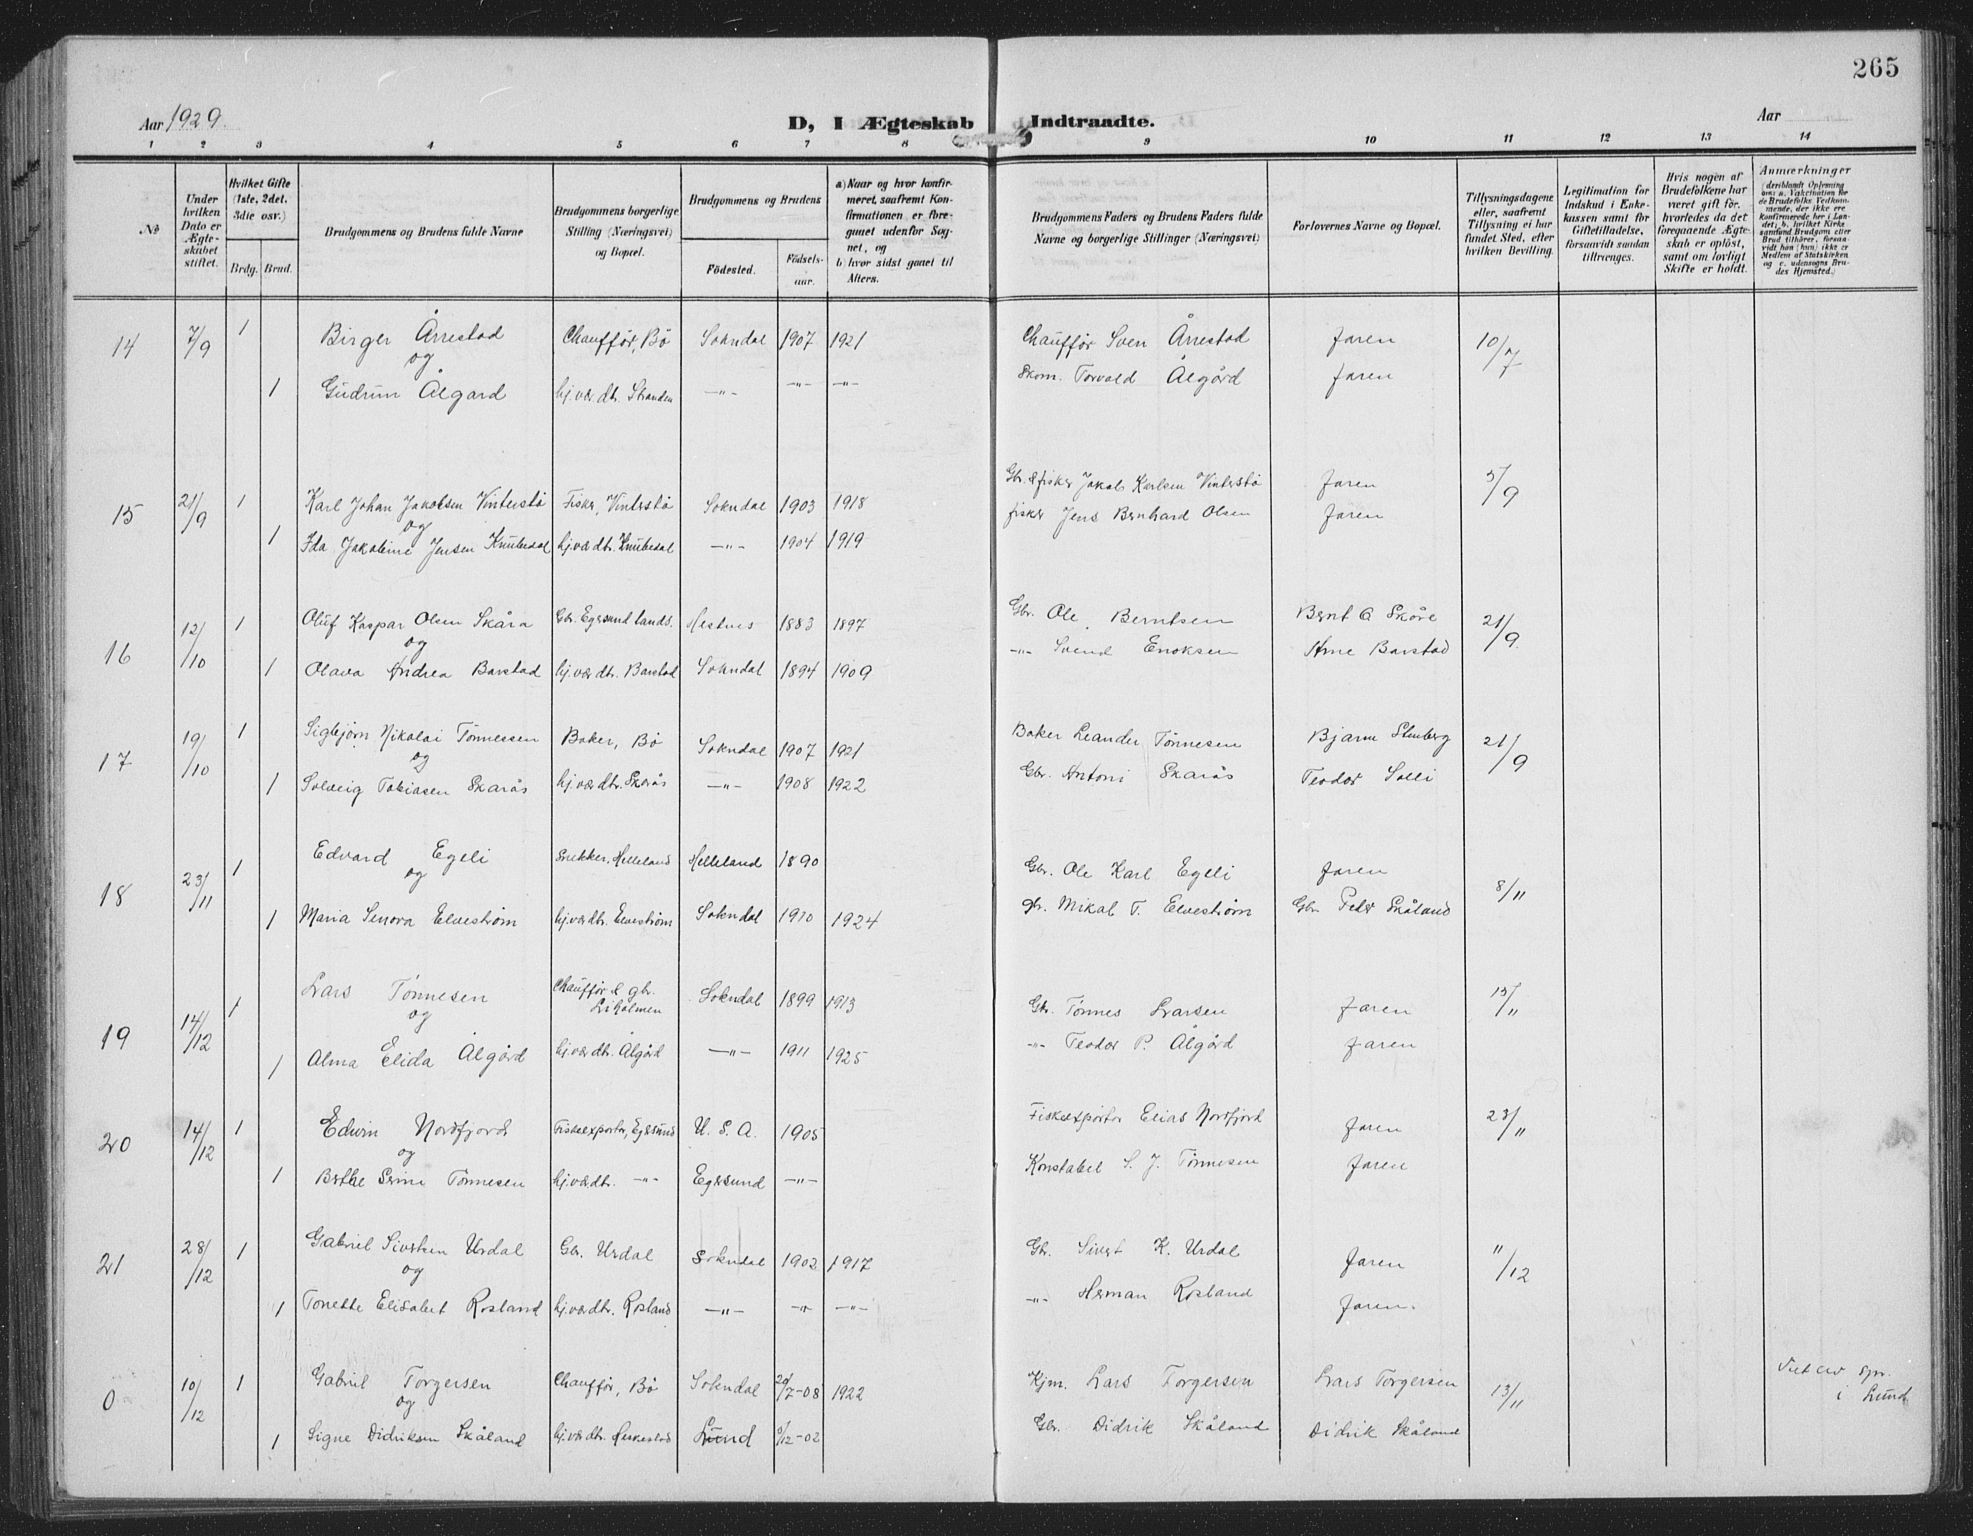 265
Aar 1929. D, I Ægteskab Indtraadte. Aar
1 2 3 4 5 6 7 8 9 10 11 12 13 14
№
Under hvilken Dato er Ægteskabet stiftet.
Hvilket Gifte (1ste, 2det, 3die osv.)
Brdg. Brud.
Brudgommens og Brudens fulde Navne
Brudgommens borgerlige Stilling (Næringsvei) og Bopæl.
Brudgommens og Brudens
Fødested. Fødselsaar.
a) Naar og hvor konfirmeret, saafremt Konfirmationen er foregaaet udenfor Sognet, og
b) hvor sidst gaaet til Alters.
Brudgommens Faders og Brudens Faders fulde Navne og borgerlige Stillinger (Næringsvei)
Forlovernes Navne og Bopæl.
Tillysningsdagene eller, saafremt Tillysning ei har fundet Sted, efter hvilken Bevilling.
Legitimation for Indskud i Enkekassen samt for Giftetilladelse, forsaavidt saadan tiltrænges.
Hvis nogen af Brudefolkene har været gift før, hvorledes da det foregaaende Ægteskab er opløst, samt om lovligt Skifte er holdt.
Anmærkninger
(deriblandt Oplysning om: a. Vakcination for de Brudefolks Vedkommende, der ikke ere konfirmerede her i Landet; b. hvilket Kirkesamfund Brudgom eller Brud tilhører, forsaavidt han (hun) ikke er Medlem af Statskirken og c. udensogns Brudes Hjemsted.)
14 7/9 1 Birger Årrestad Chauffør, Bø Sokndal 1907 1921 Chauffør Sven Årrestad Faren 10/7
og
1 Gudrun Ålgard hj.vær. dtr. Stranden —"— —"— —"— Skom. Torvald Ålgård Faren
15 21/9 1 Karl Johan Jakobsen Vinterstø Fisker, Vinterstø Sokndal 1903 1918 Gbr. & fisker Jakob Karlsen Vinterstø Faren 5/9
og
1 Ida Jakobine Jensen Knubedal hj.vær dtr. Knubedal —"— 1904 1919 fisker Jens Bernhard Olsen Faren
16 12/10 1 Oluf Kaspar Olsen Skåra Gbr. Egersund lands. Hestnes 1883 1897 Gbr. Ole Berntsen Bernt O Skåre 21/9
og
1 Olava Andrea Barstad hj.vær dtr. Barstad Sokndal 1894 1909 —"— Svend Enoksen Arne Barstad
17 19/10 1 Sigbjørn Nikolai Tønnessen Baker, Bø Sokndal 1907 1921 Baker Leander Tønnesen Bjarne Stenberg 21/9
og
1 Solveig Tobiasen Skarås hj.vær dtr. Skarås —"— 1908 1922 Gbr. Antoni Skarås Teodor Solli
18 23/11 1 Edvard Egeli Snekker, Helleland Helleland 1890 Gbr. Ole Karl Egeli Faren 8/11
og
1 Maria Senora Elvestrøm hj.vær dtr. Elvestrøm Sokndal 1910 1924 gbr. Mikal T. Elvestrøm Gbr. Peder Skåland
19 14/12 1 Lars Tønnesen Chauffør & gbr. Liholmen Sokndal 1899 1913 Gbr. Tønnes Larsen Faren 15/11
og
1 Alma Elida Ålgård hj.vær dtr. Ålgård —"— 1911 1925 —"— Teodor P. Ålgård Faren
20 14/12 1 Edwin Nordfjord Fiskeexportør, Egersund U. S. A. 1905 Fiskeexportør Elias Nordfjord Faren 23/11
og
1 Berthe Serine Tønnesen hj.vær dtr. —"— Egersund —"— Konstabel S. J. Tønnesen Faren
21 28/12 1 Gabriel Sivertsen Urdal Gbr. Urdal Sokndal 1902 1917 Gbr. Sivert K. Urdal Faren "/12
og
1 Tonette Elisabet Rosland hj.vær dtr. Rosland —"— —"— —"— —"— Herman Rosland Faren.
0 10/12 1 Gabriel Torgersen Chauffør, Bø Sokndal 20/7-08 1922 Kjm. Lars Torgersen Lars Torgersen 13/11 Viet av spr. i Lund
og
1 Signe Didriksen Skåland hj.vær dtr. Heskestad Lund /12-02 Gbr. Didrik Skåland Didrik Skåland